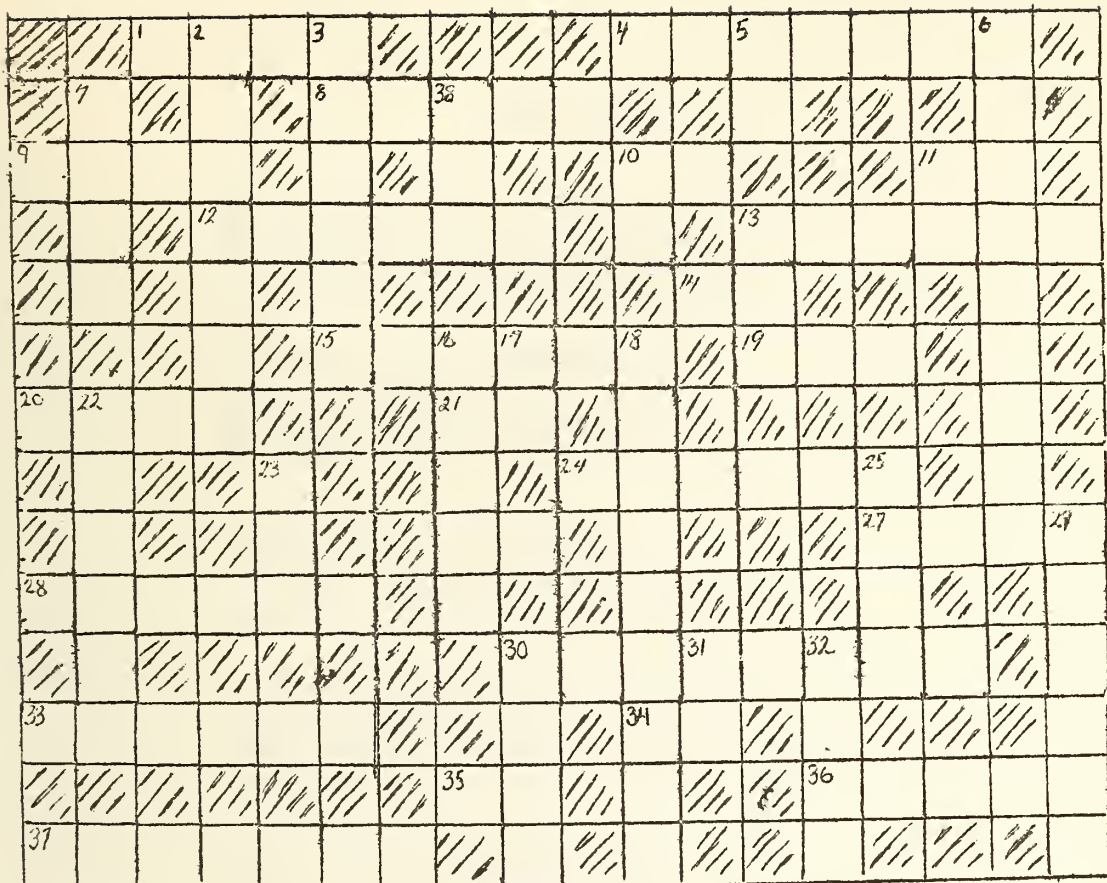 1 2 3 4 5 6
7 8 38
9 10 11
12 13
14
15 16 17 18 19
20 22 21
23 24 25
27 29
28
30 31 32
33 34
35 36
37